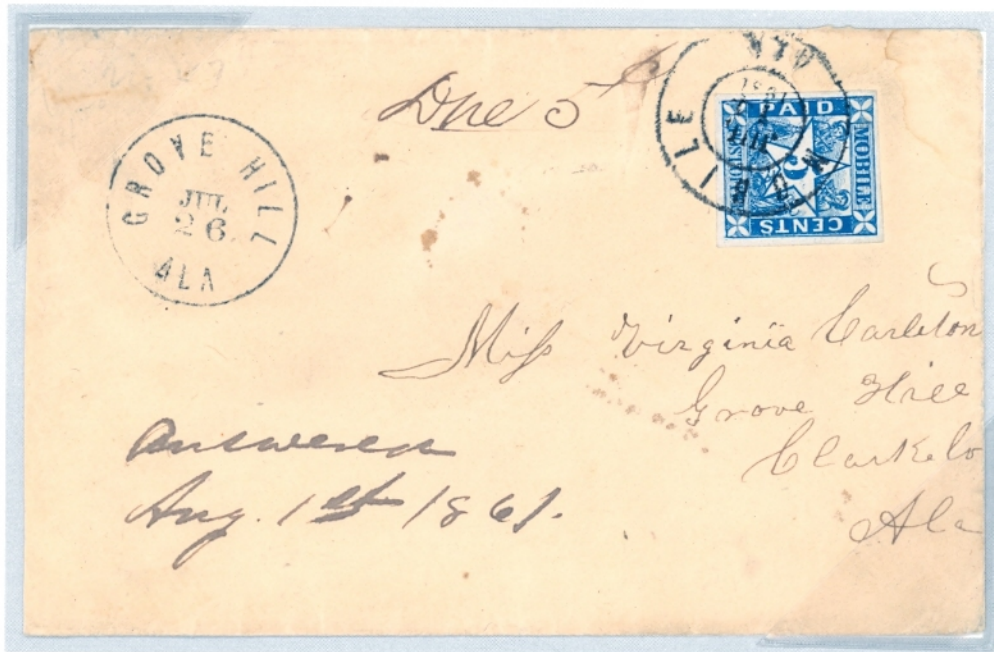 Due 5
GROVE HILL
JUL
26
ALA
MOBILE
ALA
PAID
MOBILE
5
CENTS
Miss Virginia Carleton
Grove Hill
Clarke Co
Ala
Answered
Aug. 1st 1861.